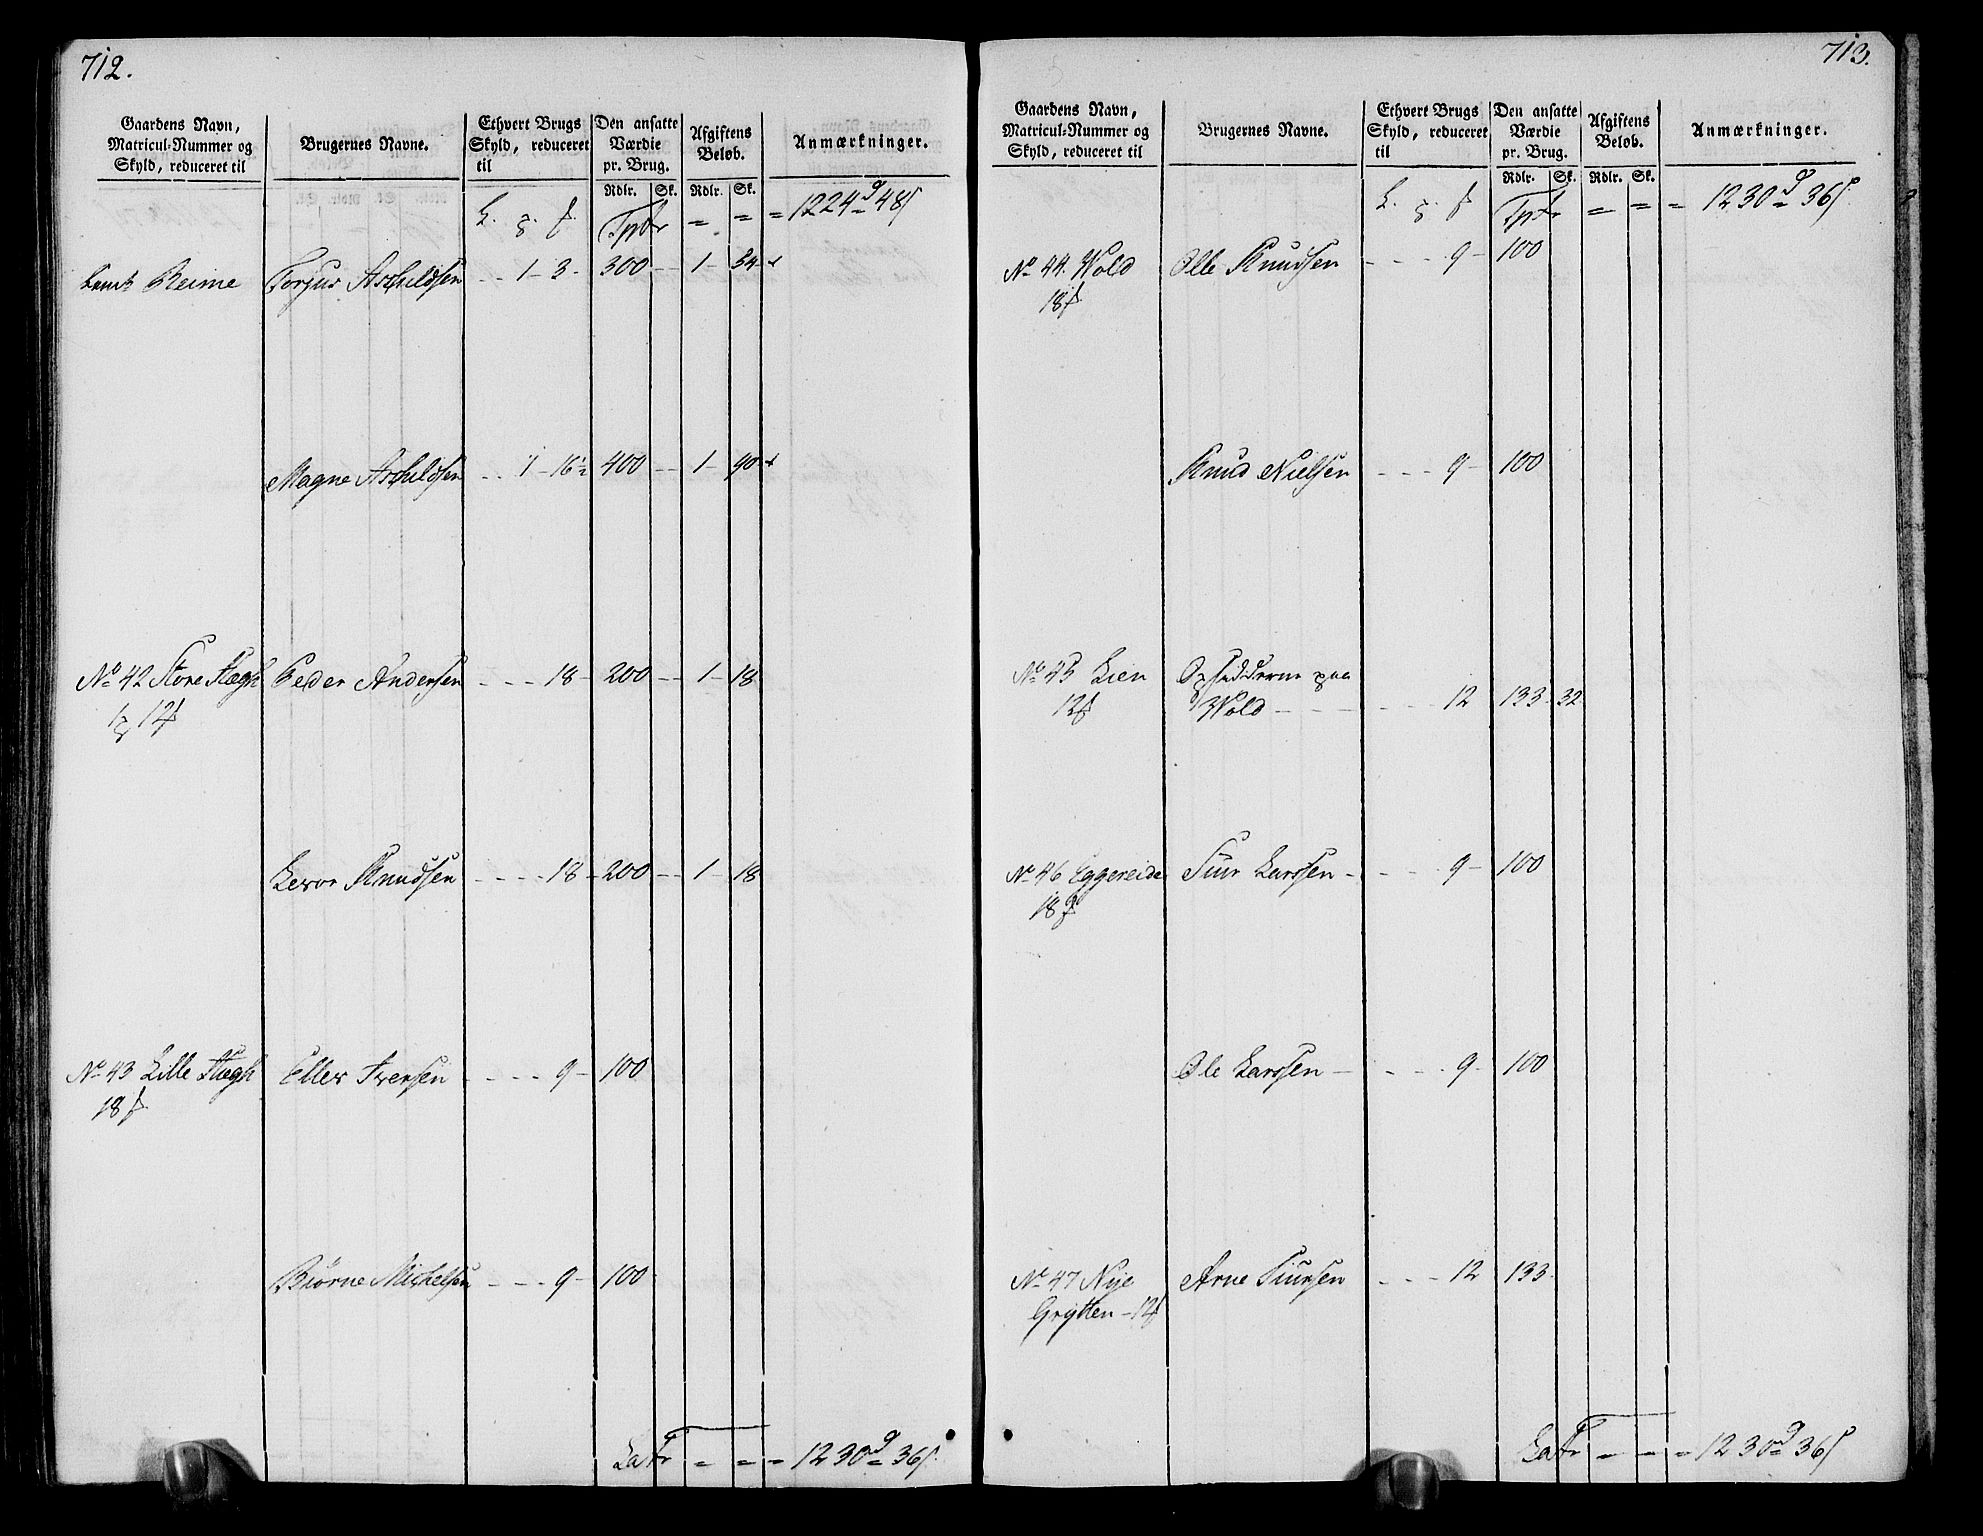 712.
Gaardens Navn,
Matricul-Nummer og
Skyld, reduceret til
Brugernes Navne.
Ethvert Brugs
Skyld, reduceret
til
Den ansatte
Værdie
pr. Brug.
Afgiftens
Beløb.
Anmærkninger.
Rdlr. Sk. Rdlr. Sk.
Tptr = = = 1224 48
Reime Torjus Aschildsen - - 1 - 3 - 300 - - 1 - 54
Magne Aschildsen - - 1 - 16½ 400 - - 1 - 90
No 42 Store Slægh Peder Andersen - - - - 18 - 200 - - 1 - 18
1 12
Levor Knudsen - - - - 18 - 200 - - 1 - 18
No 43 Lille Slægh Ellev Iversen - - - - 9 - 100
18
Biørne Michelsen - - - - 9 - 100
Latr = = = 1230 36
713.
Gaardens Navn,
Matricul-Nummer og
Skyld, reduceret til
Brugernes Navne.
Ethvert Brugs
Skyld, reduceret
til
Den ansatte
Værdie
pr. Brug.
Afgiftens
Beløb.
Anmærkninger.
Rdlr. Sk. Rdlr. Sk.
Tptr = = = 1230 36
No 44. Wold Olle Knudsen - - - - 9 - 100
18
Knud Nielsen - - - 9 - 100
No 45 Lien Opsidderne paa
12 Wold - - - - - - 12 133 - 32
No 46 Eggereide Siur Larssen - - - - 9 - 100
18
Ole Larssen - - - - 9 - 100
No 47 Nye Arne Siursen - - - 12 133
Grytten - 12
Latr = = = 1230 36